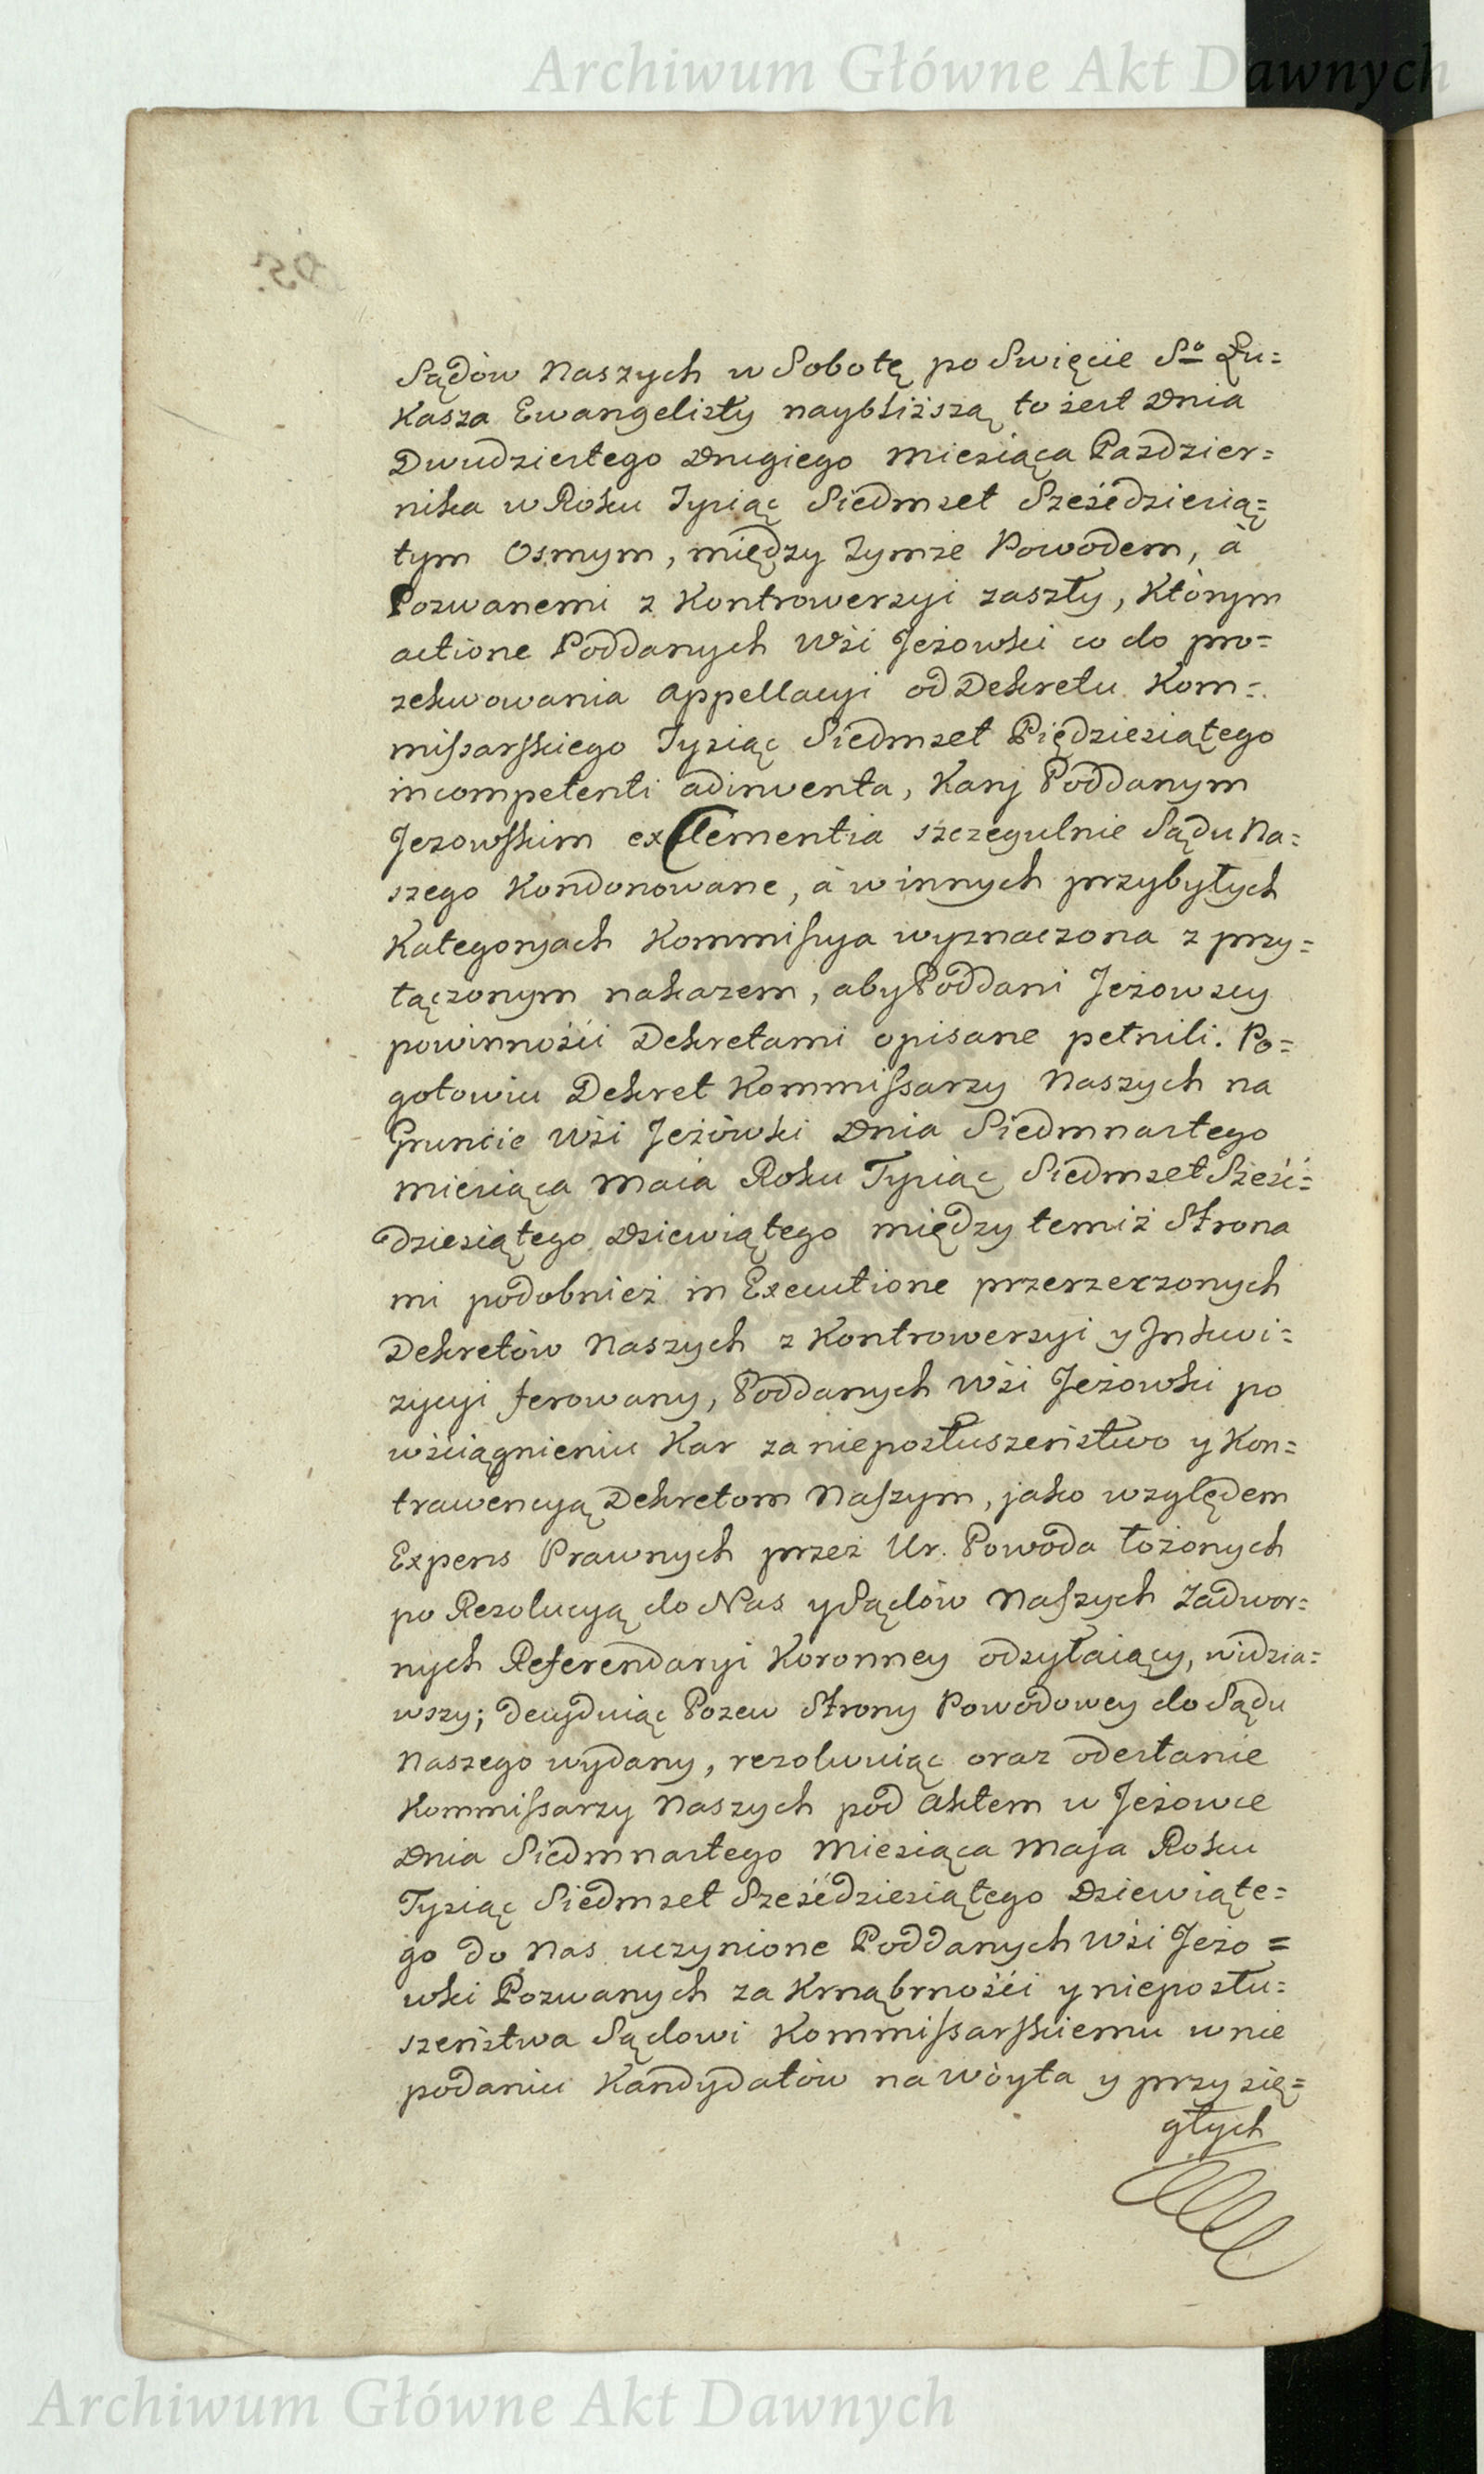 Archiwum Główne Akt Dawnych
Sądów Naszych w Sobotę po Swięcie So Łu=
kasza Ewangelisty naybliższą to iest Dnia
Dwudziestego Drugiego Miesiąca Pazdzier=
nika w Roku Tysiąc Siedmset Sześćdziesią=
tym Osmym, między Tymże Powodem, à
Pozwanemi z Kontrowersyi zaszły, Którym
actione Poddanych Wśi Jeżowski co do pro=
zekwowania appellacyi od Dekretu Kom=
missarskiego Tysiąc Siedmset Piędziesiątego
incompetenti adinventa, Kary Poddanym
Jeżowskim ex Clementia szczegulnie Sądu Na=
szego Kondonowane, à w innych przybyłych
Kategoryach Kommissya wyznaczona z przy=
łączonym nakazem, aby Poddani Jeżowscy
powinnośći Dekretami opisane pełnili. Po=
gotowiu Dekret Kommissarzy Naszych na
Gruncie Wśi Jeżówski Dnia Siedmnastego
Miesiąca Maia Roku Tysiąc Siedmset Sześć=
dziesiątego Dziewiątego między temiż Strona
mi podobnież in Executione przerzeczonych
Dekretów Naszych z Kontrowersyi y Inkwi=
zycyi ferowany, Poddanych Wśi Jeżowski po
wśćiągnieniu Kar za nieposłuszeństwo y Kon=
trawencyą Dekretom Naszym, jako względem
Expens Prawnych przez Ur. Powoda łożonych
po Rezolucyą do Nas y Sądów Naszych Zadwor=
nych Referendaryi Koronney odsyłaiący, widzia=
wszy; decyduiąc Pozew Strony Powodowey do Sądu
Naszego wydany, rezolwuiąc oraz odesłanie
Kommissarzy Naszych pod Aktem w Jeżowce
Dnia Siedmnastego Miesiąca Maja Roku
Tysiąc Siedmset Sześćdziesiątego Dziewiąte=
go do Nas uczynione Poddanych Wśi Jeżo=
wski Pozwanych za Krnąbrnośći y nieposłu=
szeństwa Sądowi Kommissarskiemu w nie
podaniu Kandydatów na Wòyta y przysię=
głych
Archiwum Główne Akt Dawnych